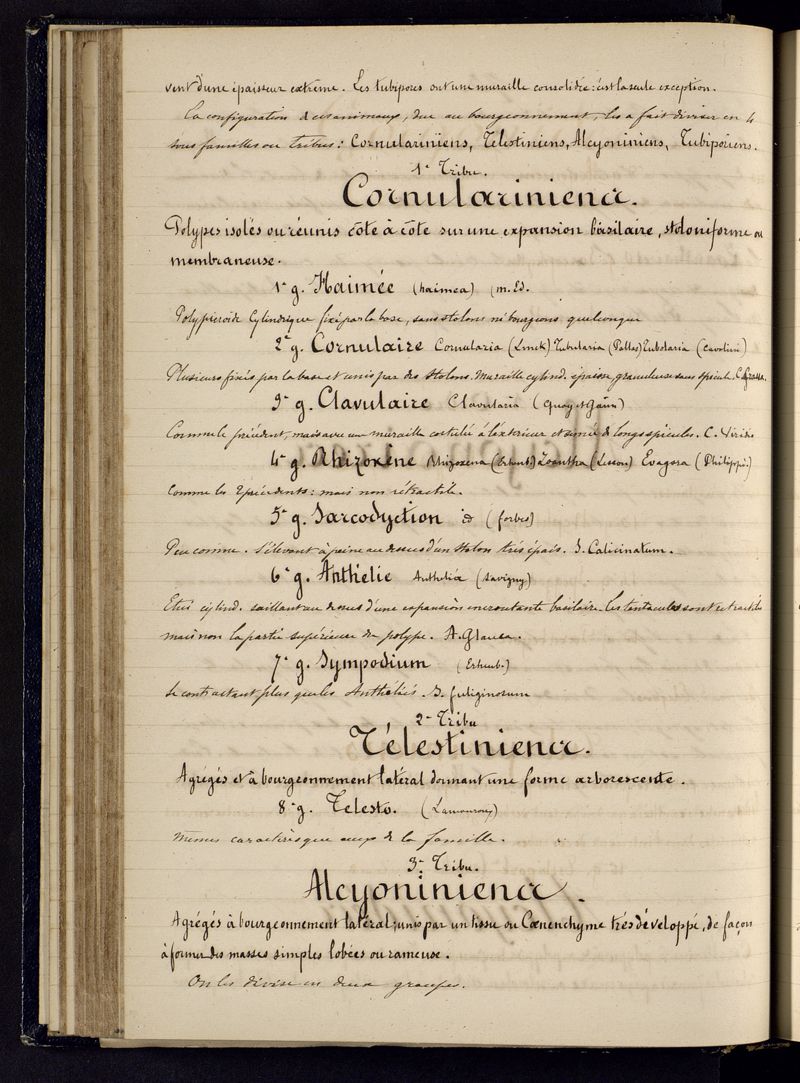 vent d'une épaisseur extrême. Les tubipores ont une muraille consolidée: c'est la seule exception.
La configuration de ces animaux, due au bourgeonnement, les a fait diviser en 4
sous familles ou tribus: Cornulariniens, Télestiniens, Alcyoniniens, Tubiporiens.
1e Tribu.
Cornulariniens.
Polypes isolés ou réunis côte à côte sur une expansion basilaire, stoloniforme ou
membraneuse.
1e g. Haimée (haimea) (m. Ed.
Polypieroïde Cylindrique fixé par la base, sans stolons ni bourgeons quelconque
2e g. Cornulaire Cornularia (Lmck) Tubularia (Pallas) (Cavolini)
Plusieurs fixés par la base et unis par des stolons. Muraille cylind. épaisse, granuleuse sans spicule. C. Crassa.
3e g. Clavulaire Clavularia (Quoy et Gaim)
Comme le précédent, mais avec une muraille costulée à l'extérieur et armée de longs spicules. C. Viridis
4e g. Rhizoxène Rhizoxena (Erhenb) Zoantha (Lesson) Evagora (Philippi.)
Comme les 2 précédents: mais non rétractile.
5e g. Sarcodyction id (forbes)
Peu connue. S'élevant à peine au dessus d'un stolon très épais. S. Calicinatum.
6e g. Anthélie Anthelia (Savigny)
Etui cylind. saillant au dessus d'une expansion encroutante basilaire. Les tentacules sont rétractiles
mais non la partie supérieure du polype. A. Glauca.
7e g. Sympodium (Erhenb.)
Se contractant plus que les Anthélies. S. fuliginosum
2e Tribu
Télestiniens.
Agrégés et à bourgeonnement latéral donnant une forme arborescente.
8e g. Telesto. (Lamouroux)
Mêmes caractères que ceux de la famille.
3e Tribu.
Alcyoniniens.
Agrégés à bourgeonnement latéral, unis par un tissu ou Cœnenchyme très développé, de façon
à former des masses simples lobées ou rameuse.
On les divise en deux groupes.